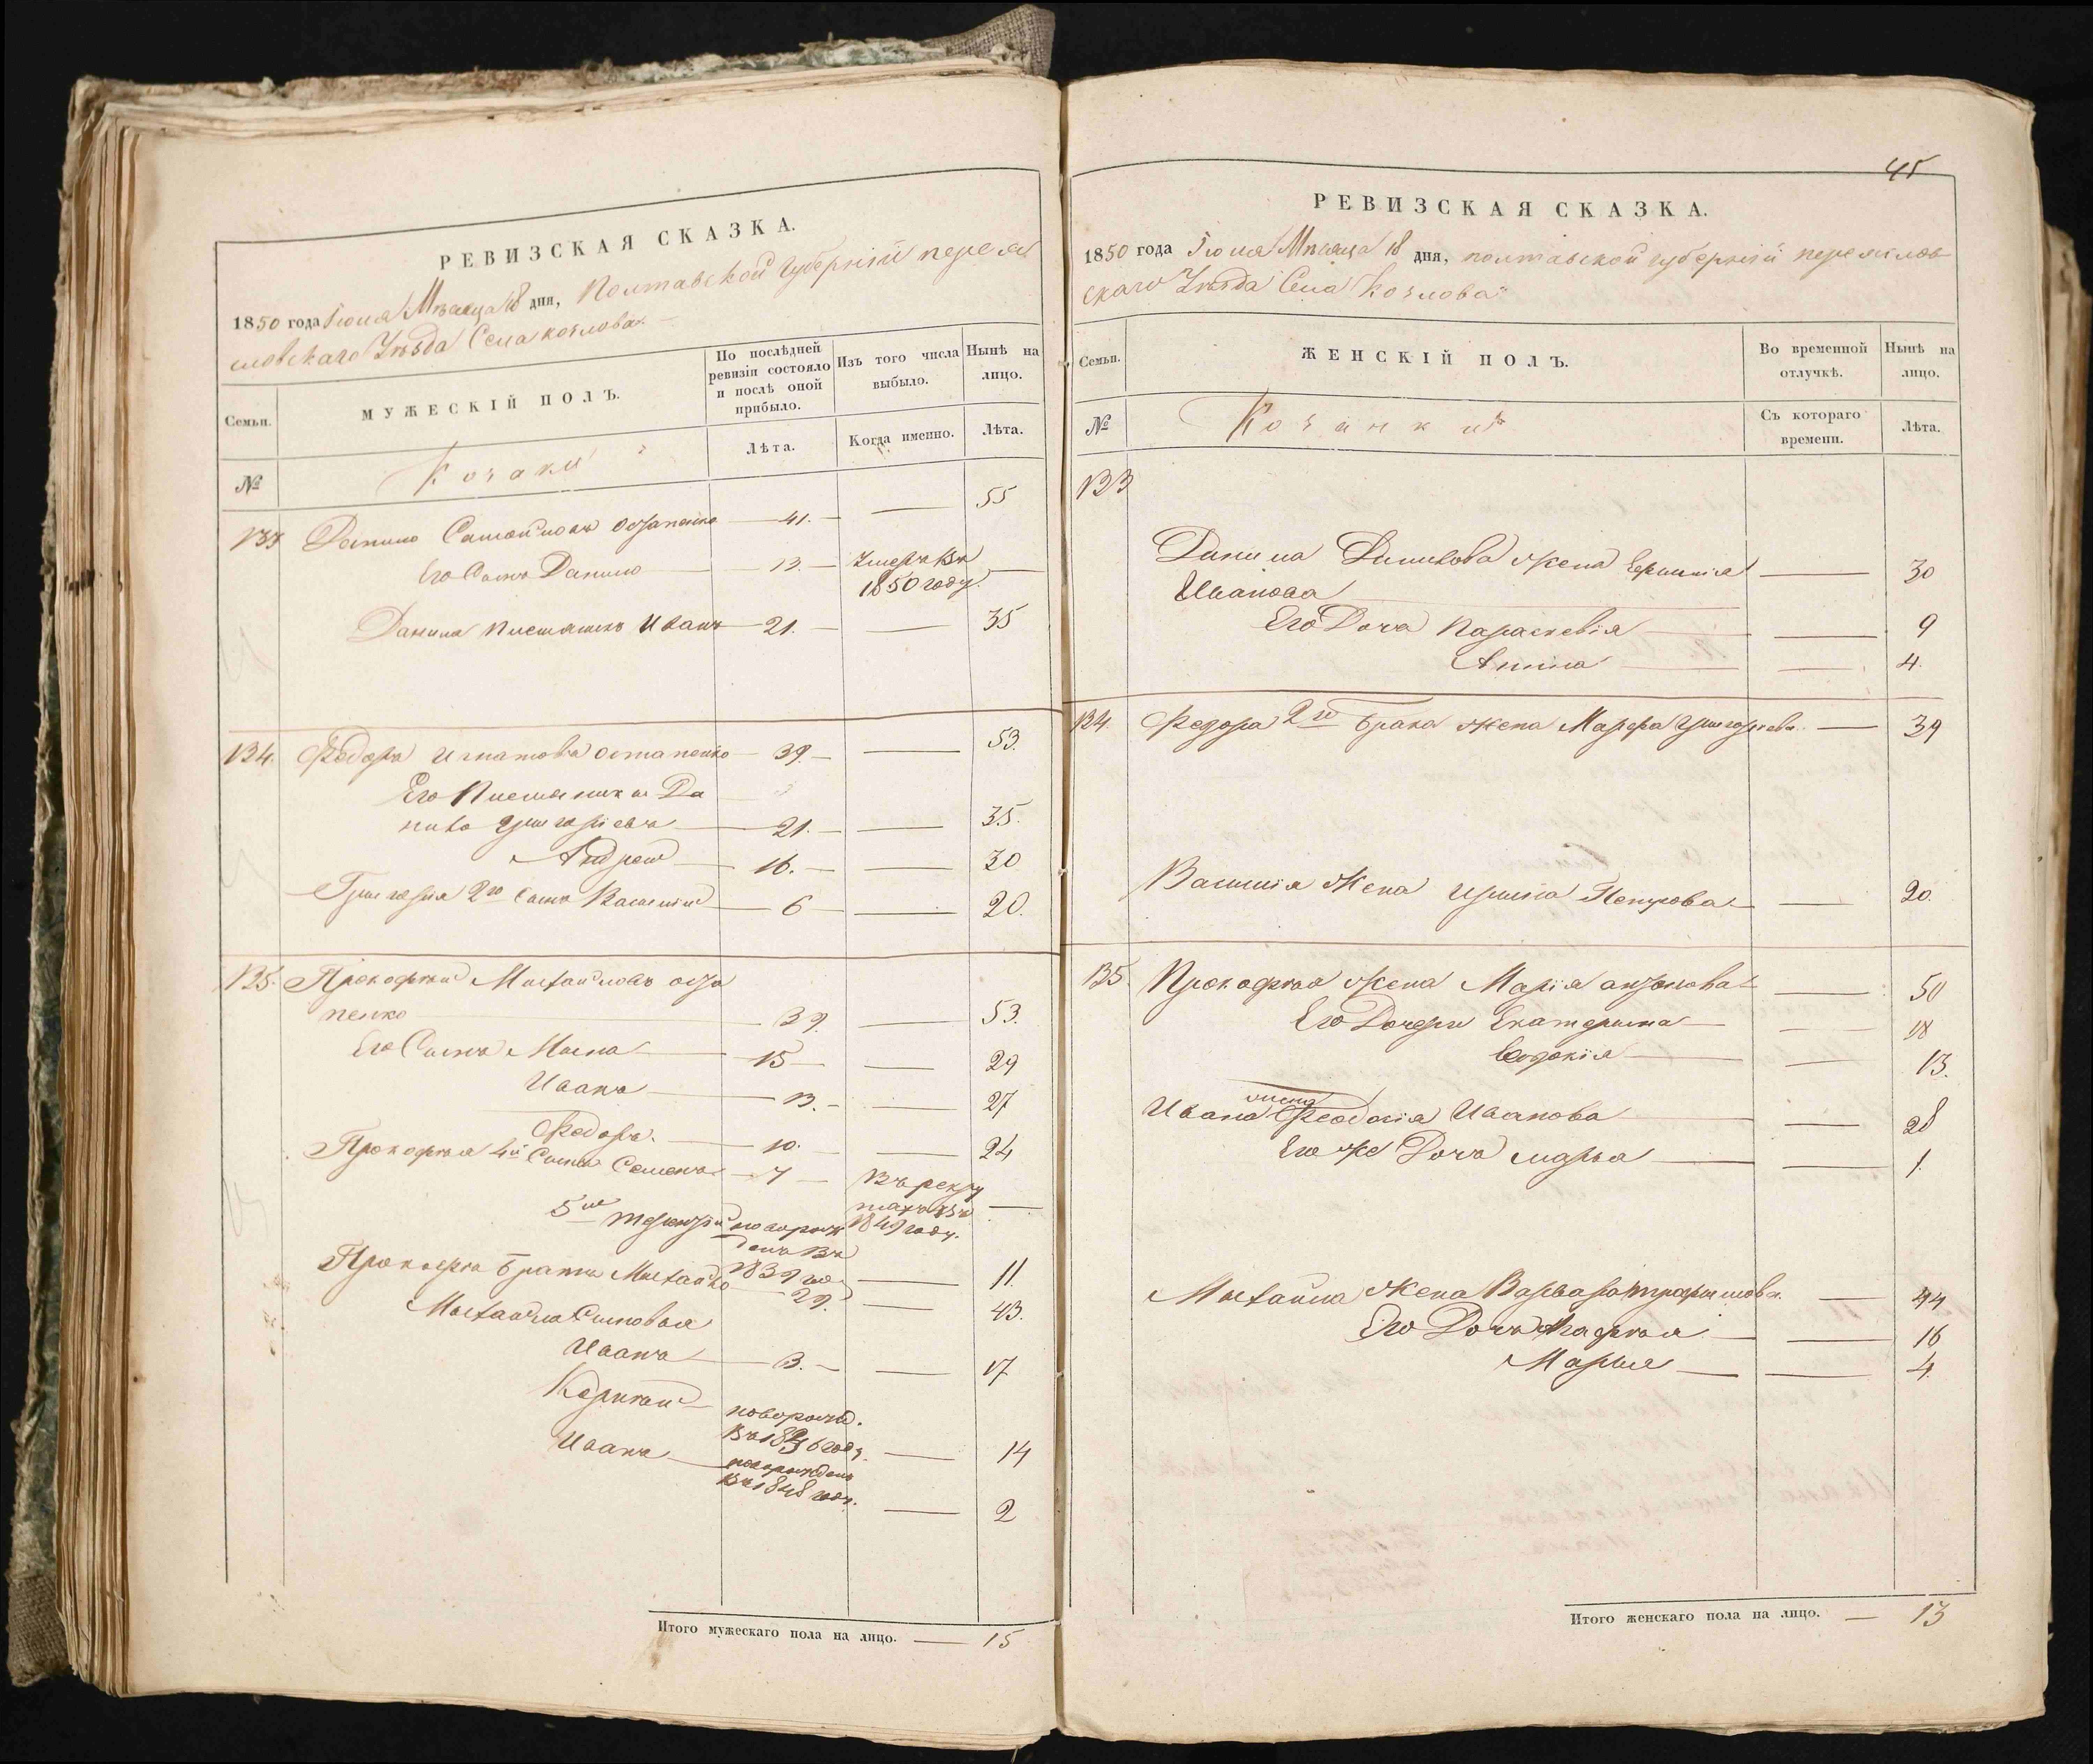 РЕВИЗСКАЯ СКАЗКА.
1850 года Іюля Мѣсяца 18 дня, Полтавской губерніи переяс
ловскаго Уѣзда Села козлова
Семьи.
МУЖЕСКІЙ ПОЛЪ.
По послѣдней ревизіи состояло и послѣ оной прибыло.
Изъ того числа выбыло.
Нынѣ на лицо.
№
Козаки
Лѣта.
Когда именно.
Лѣта.
133 Самойловъ — 41. — — 55
Его Сынъ Данило — 13. — Умеръ въ —
1850 году.
Данила племянникъ Иванъ — 21. — — 35
134. Федоръ Игнатовъ остапенко — 39. — — 53.
Его Племянники Да
нило Григорьевъ — 21. — — 35.
Андрей — 16. — — 30
Григорія 2го сынъ Василий — 6 — — 20.
135. Прокофий Михайловъ оста
пенко — 39. — — 53.
Его Сынъ — 15 — — 29
Иванъ — 13. — — 27
Федоръ — 10. — — 24
Прокофья 4й Сынъ Семенъ — 7 — Въ рекру
тахъ въ —
1849 году.
5й новорож
денъ въ
1839 го — — 11.
Прокофья братъ Михайло — 29. — — 43.
Михайла Сыновья
Иванъ — 3. — — 17
новорожд.
въ 1836 году — 14
Иванъ — новорожденъ
въ 1848 году. — 2
Итого мужескаго пола на лицо. — 15
45
РЕВИЗСКАЯ СКАЗКА.
1850 года Іюля Мѣсяца 18 дня, полтавской губерніи переяслов
скаго Уѣзда Села Козлова
Семьи.
ЖЕНСКІЙ ПОЛЪ.
Во временной отлучкѣ.
Нынѣ на лицо.
№
Козачки
Съ котораго времени.
Лѣта.
133
Данила жена — 30
Иванова
Его Дочь Параскевія — — 9
Анна — — 4.
134. Федора 2го брака жена Марфа Григорьева — 39
Василия Жена Ирина Петрова — — 20.
135. Прокофья жена Марія антонова — — 50
Его Дочери Екатерина — — 18
Евдокія — — 13.
жена
Ивана Феодосія Иванова — — 28
Его же Дочь марья — — 1.
Михайла жена Варвара трофимова — 44
Его Дочь Агафья — — 16
Марья — — 4.
Итого женскаго пола на лицо. — 13